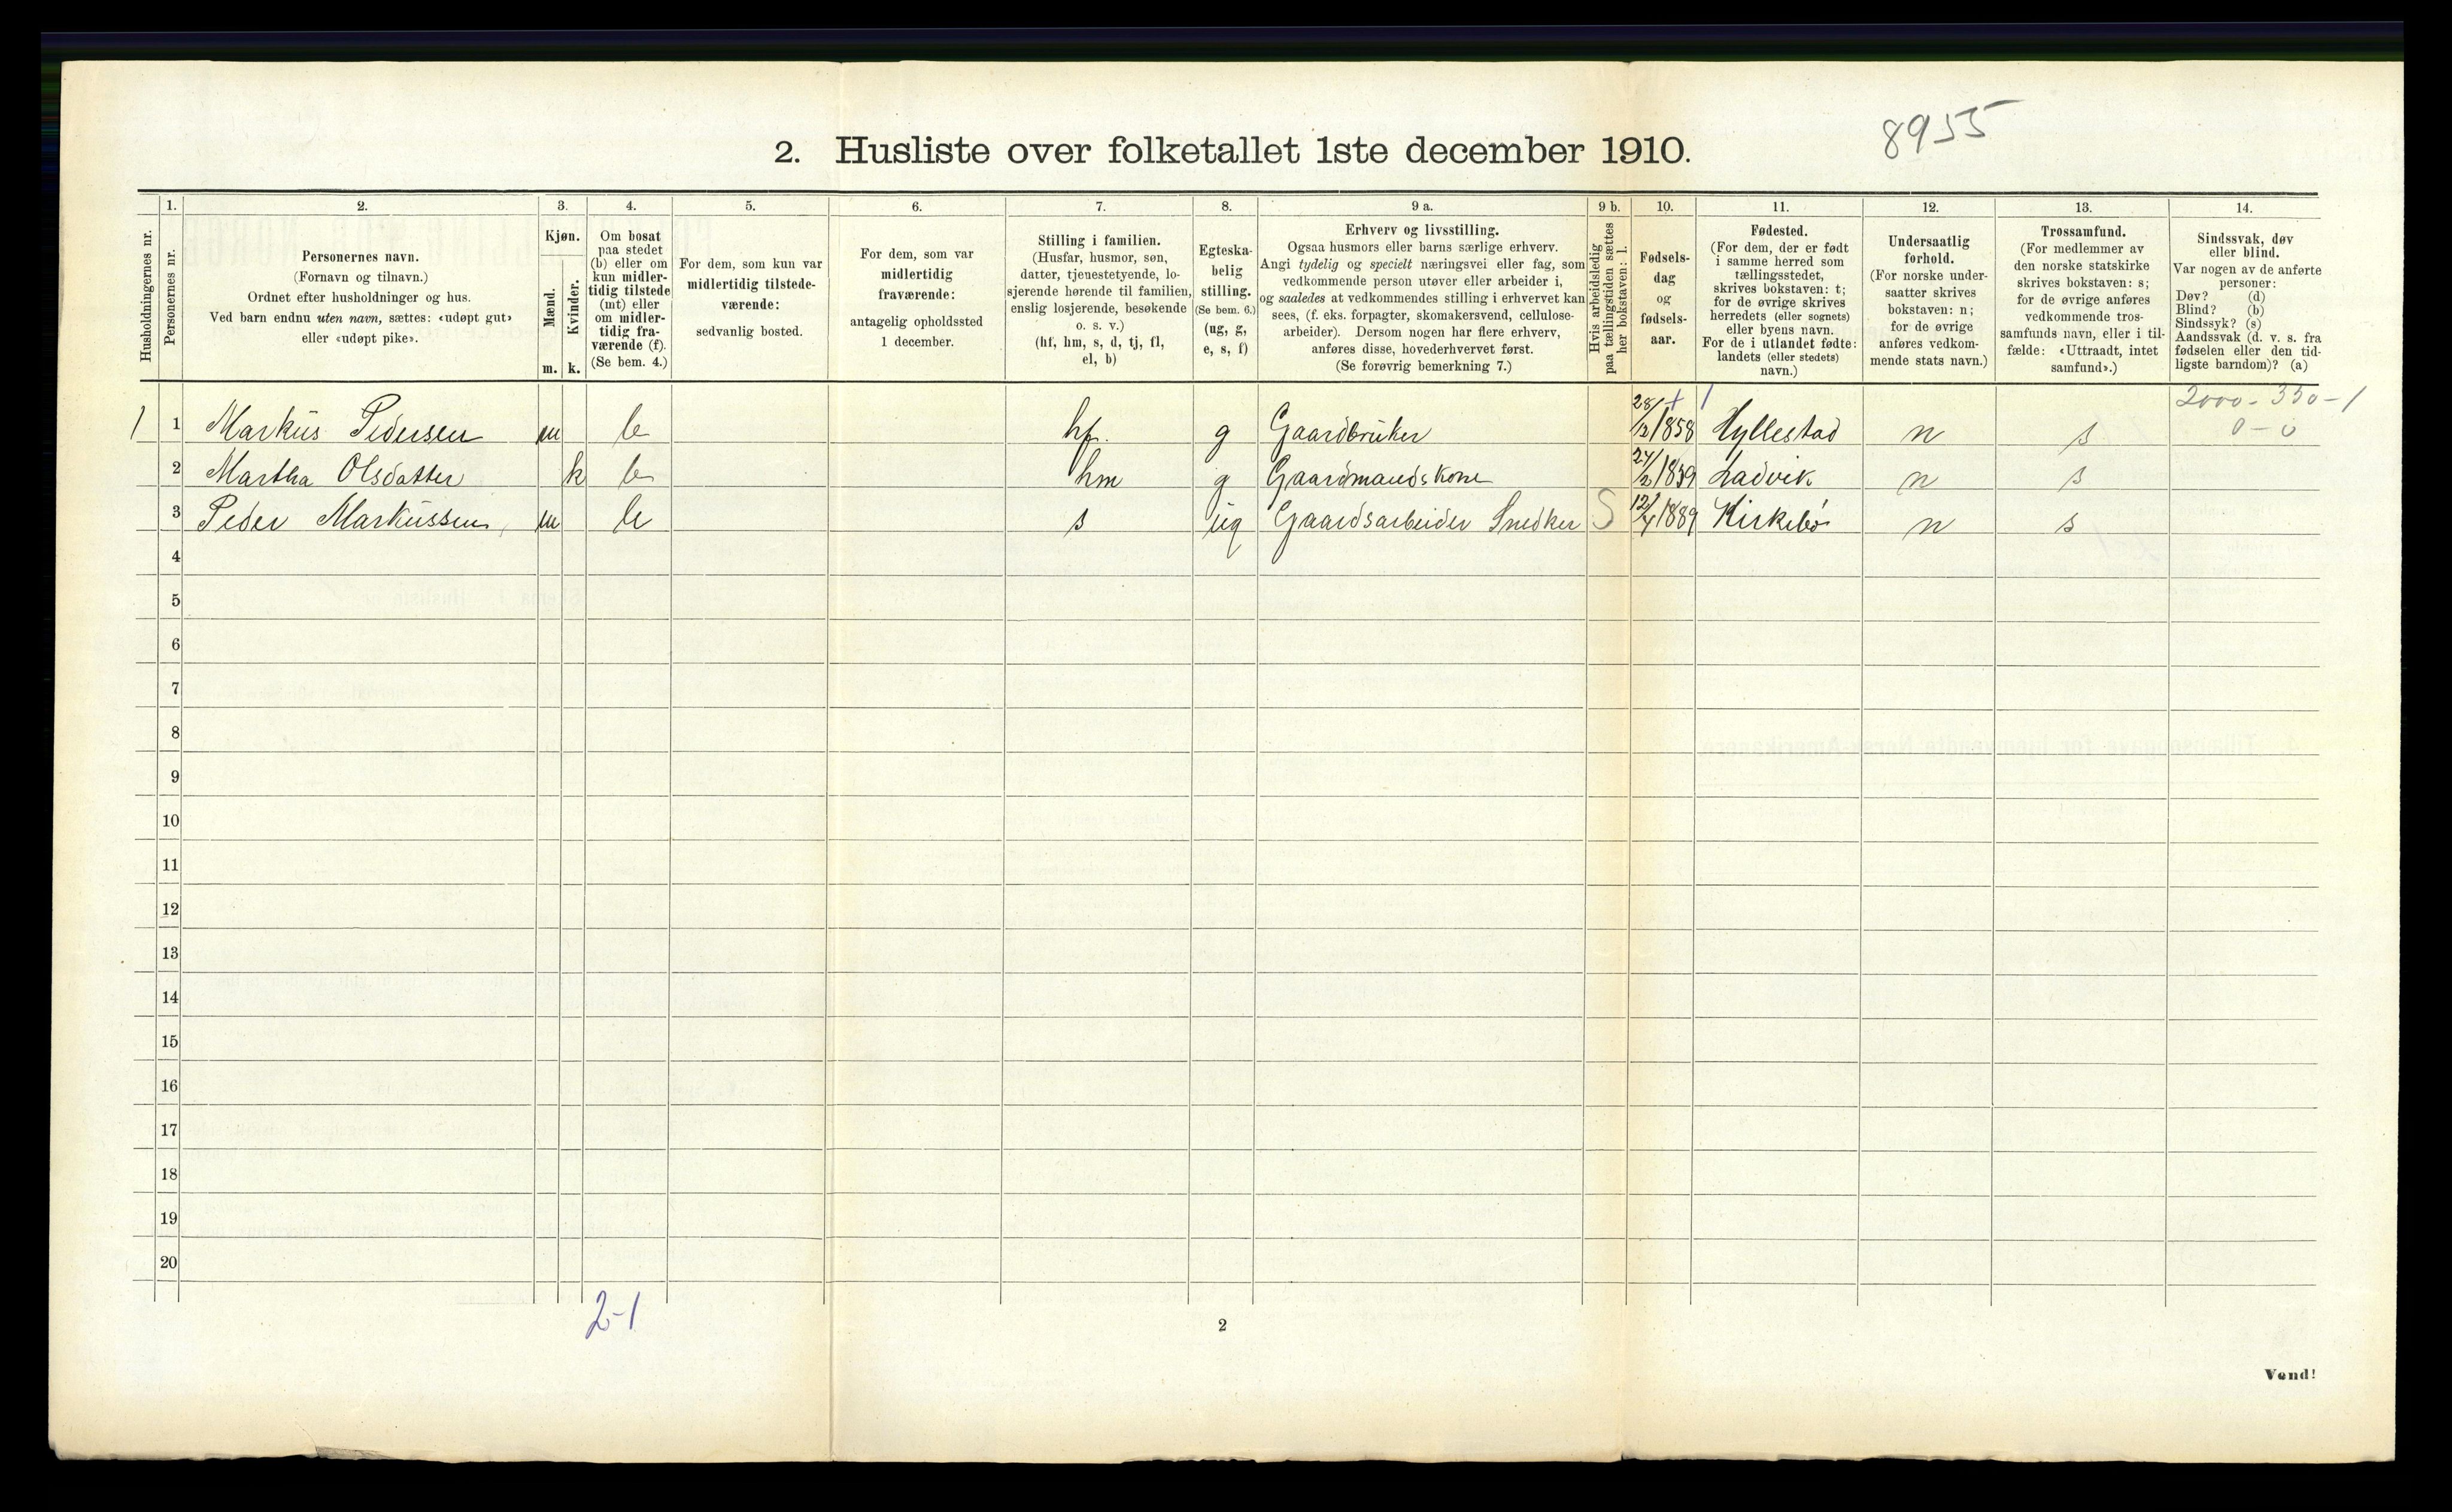 8955
2. Husliste over folketallet 1ste december 1910.
1. 2. 3. 4. 5. 6. 7. 8. 9 a. 9 b. 10. 11. 12. 13. 14.
Husholdningernes nr.
Personernes nr.
Personernes navn.
(Fornavn og tilnavn.)
Ordnet efter husholdninger og hus.
Ved barn endnu uten navn, sættes: «udøpt gut»
eller «udøpt pike».
Kjøn.
Mænd.
Kvinder.
m. k.
Om bosat
paa stedet
(b) eller om
kun midler-
tidig tilstede
(mt) eller
om midler-
tidig fra-
værende (f).
(Se bem. 4.)
For dem, som kun var
midlertidig tilstede-
værende:
sedvanlig bosted.
For dem, som var
midlertidig
fraværende:
antagelig opholdssted
1 december.
Stilling i familien.
(Husfar, husmor, søn,
datter, tjenestetyende, lo-
sjerende hørende til familien,
enslig losjerende, besøkende
o. s. v.)
(hf, hm, s, d, tj, fl,
el, b)
Egteska-
belig
stilling.
(Se bem. 6.)
(ug, g,
e, s, f)
Erhverv og livsstilling.
Ogsaa husmors eller barns særlige erhverv.
Angi tydelig og specielt næringsvei eller fag, som
vedkommende person utøver eller arbeider i,
og saaledes at vedkommendes stilling i erhvervet kan
sees, (f. eks. forpagter, skomakersvend, cellulose-
arbeider). Dersom nogen har flere erhverv,
anføres disse, hovederhvervet først.
(Se forøvrig bemerkning 7.)
Hvis arbeidsledig
paa tællingstiden sættes
her bokstaven: l.
Fødsels-
dag
og
fødsels-
aar.
Fødested.
(For dem, der er født
i samme herred som
tællingsstedet,
skrives bokstaven: t;
for de øvrige skrives
herredets (eller sognets)
eller byens navn.
For de i utlandet fødte:
landets (eller stedets)
navn.)
Undersaatlig
forhold.
(For norske under-
saatter skrives
bokstaven: n;
for de øvrige
anføres vedkom-
mende stats navn.)
Trossamfund.
(For medlemmer av
den norske statskirke
skrives bokstaven: s;
for de øvrige anføres
vedkommende tros-
samfunds navn, eller i til-
fælde: «Uttraadt, intet
samfund».)
Sindssvak, døv
eller blind.
Var nogen av de anførte
personer:
Døv? (d)
Blind? (b)
Sindssyk? (s)
Aandssvak (d. v. s. fra
fødselen eller den tid-
ligste barndom)? (a)
2000 - 350 - 1
0 - 0
1 1 Markus Pedersen m b hf. g Gaardbruker 28/12 1858 Hyllestad n s
2 Martha Olsdatter k b hm g Gaardmandskone 1839 Ladvik n s
3 Peder Markussen m b s ug Gaardsarbeider Snedker S 12/4 1889 Kirkebø n s
4
5
6
7
8
9
10
11
12
13
14
15
16
17
18
19
20
2-1
2
Vend!